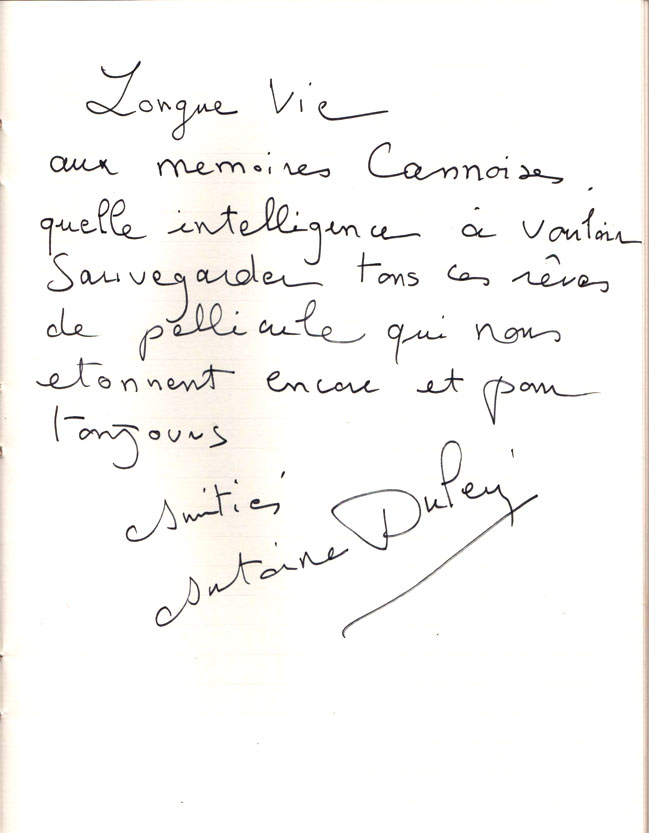 Longue Vie
aux memoires Cannoises.
quelle intelligence à vouloir
Sauvegarder tous ces rêves
de pellicule qui nous
etonnent encore et pour
toujours
Amitiés
Antoine